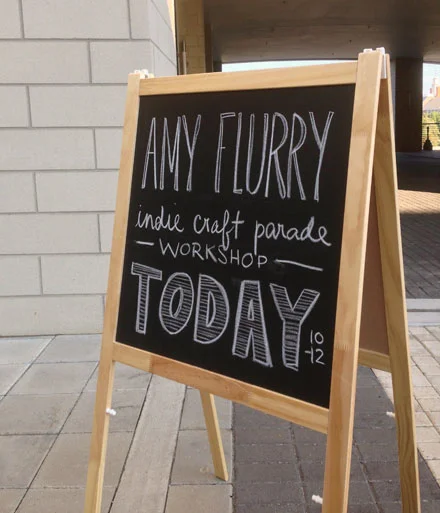 AMY FLURRY
indie craft parade
— WORKSHOP —
TODAY
10
-12